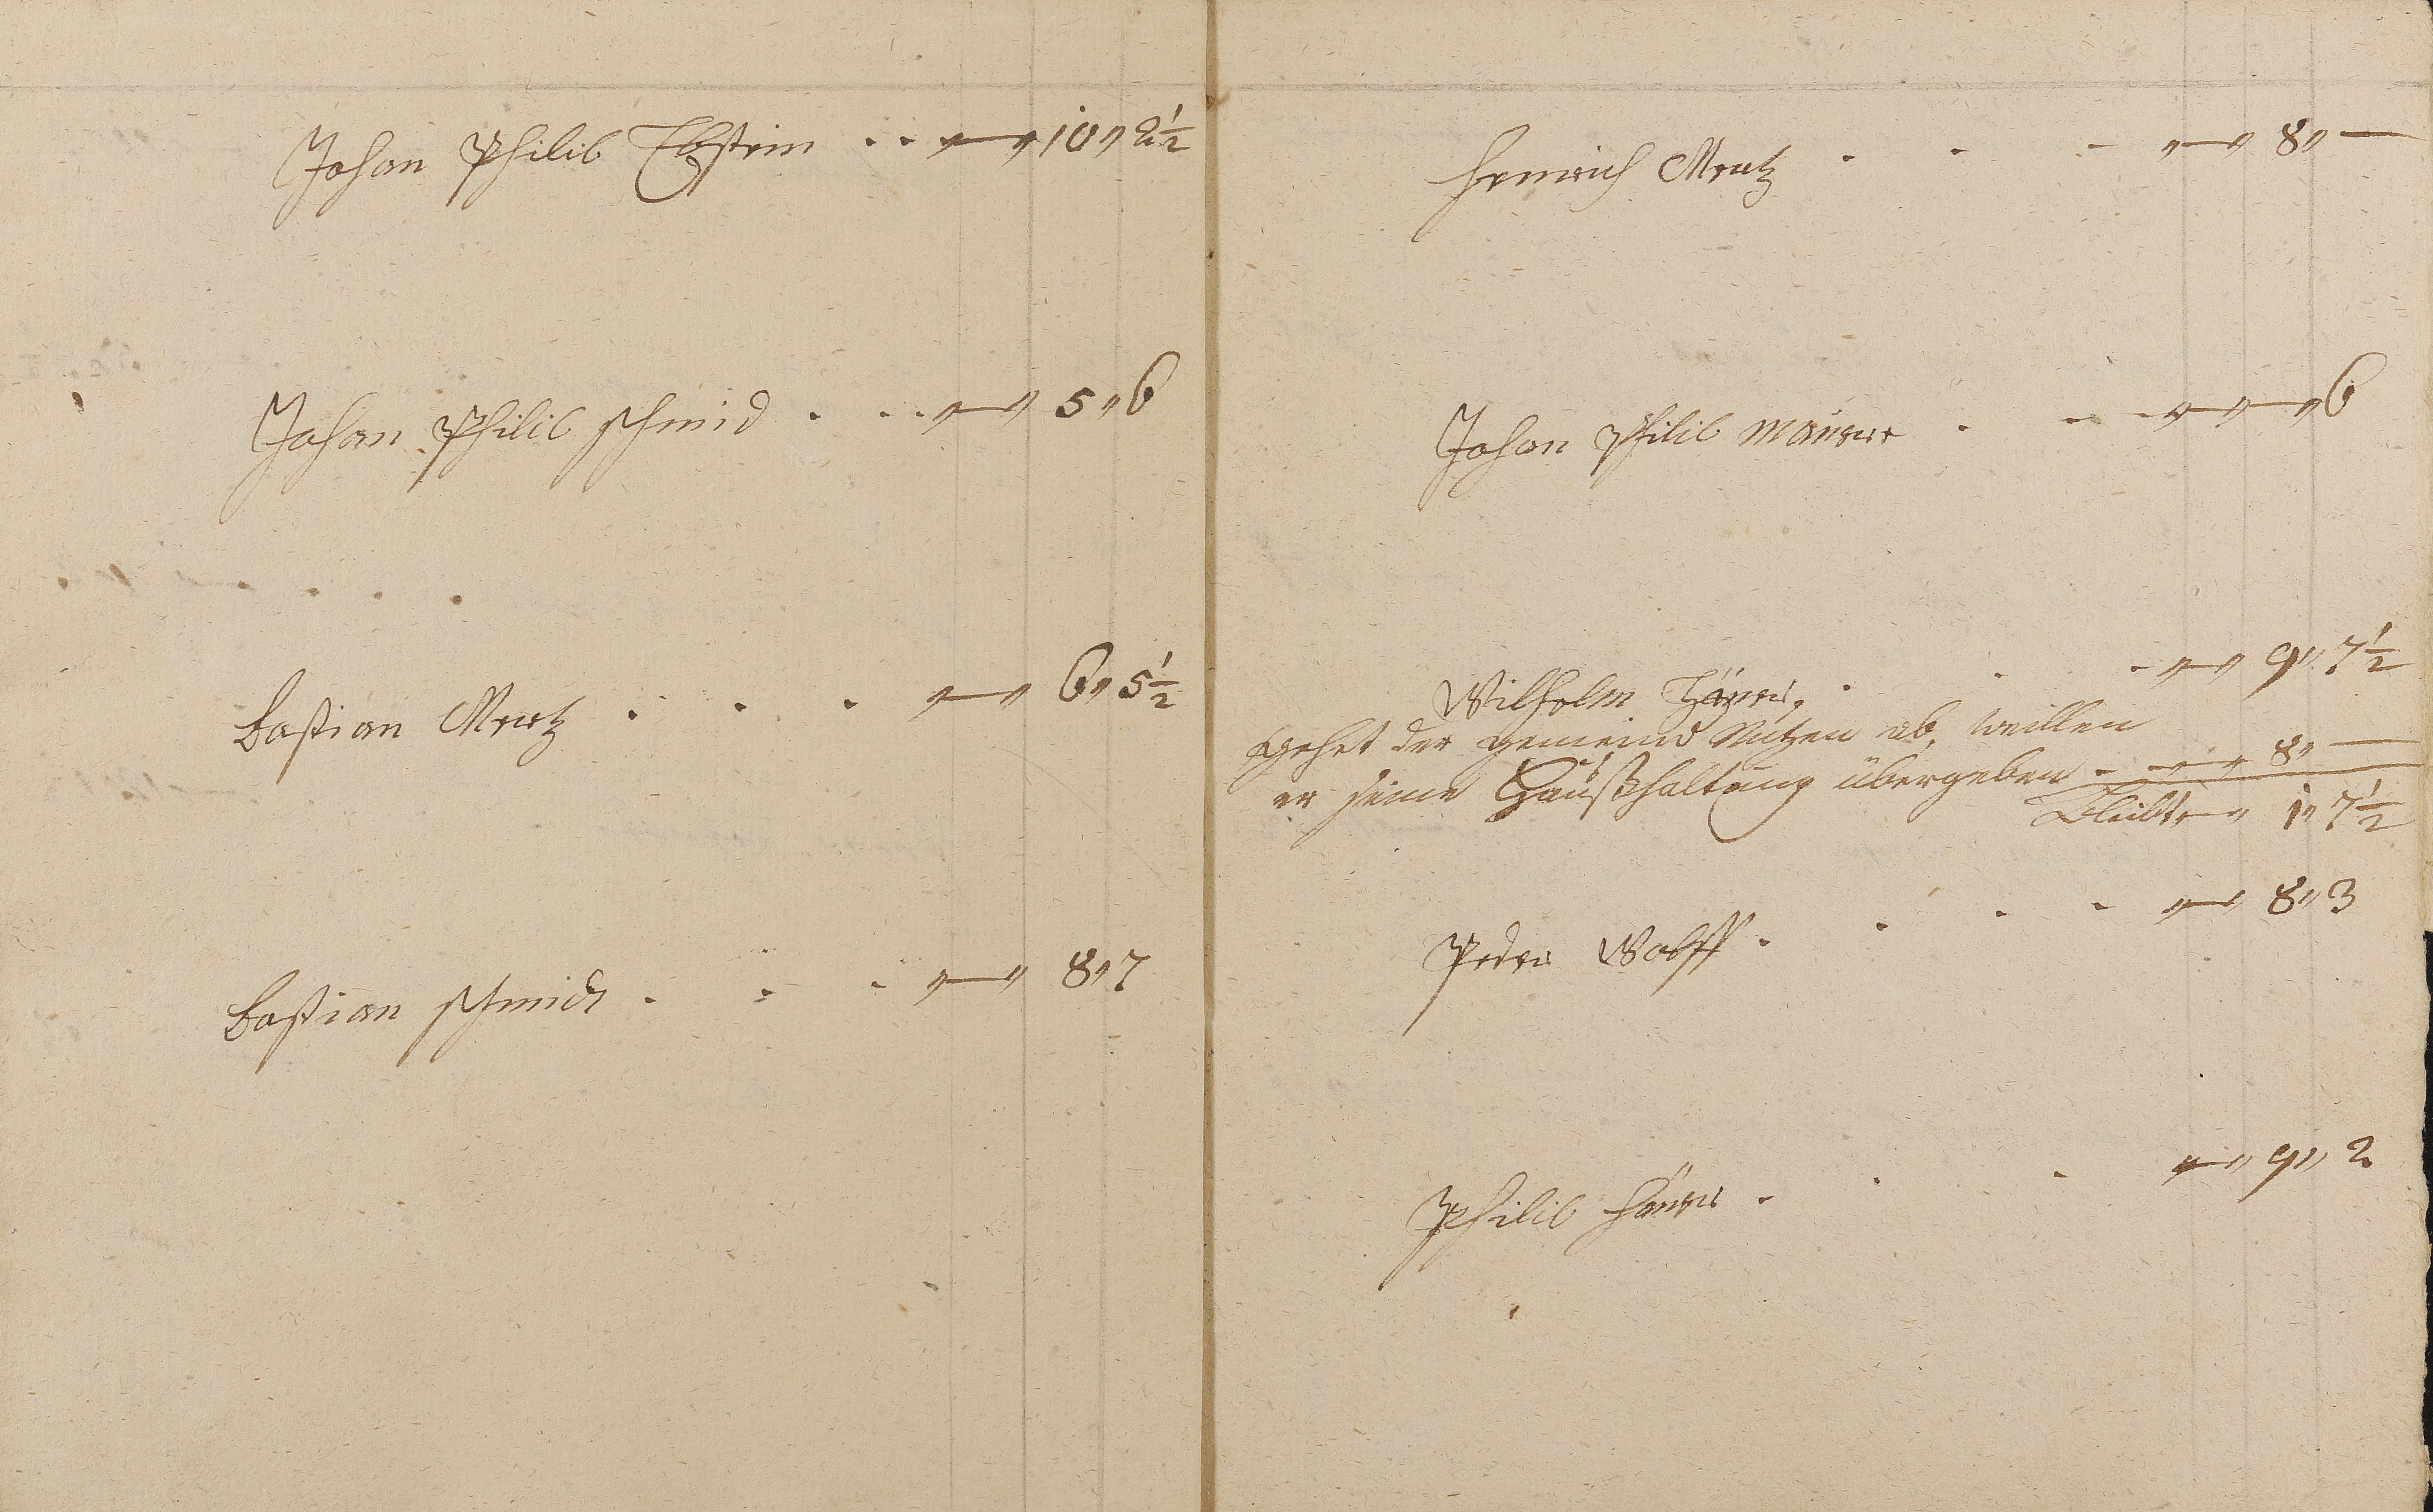 Johan Philib Ebstein . . „— „ 10 „ 2½
Johan Philib Schmid . . . „— „ 5 „ 6
Bastian Mertz . . . „— „ 6 „ 5½
Bastian Schmidt . . . „— „ 8 „ 7
Henrich Mertz . . . „— „ 8 „ —
Johan Philib Maurer . . . „— „ — „ 6
Wilhelm . . . „— „ 9 „ 7½
gehet der gemeind Nutzen ab, weillen
er seine Haußhaltung übergeben . „— „ 8 „ —
Bleibt „— „ 1 „ 7½
Peder Wolff . . . . „— „ 8 „ 3
Philib . . . „— „ 9 „ 2